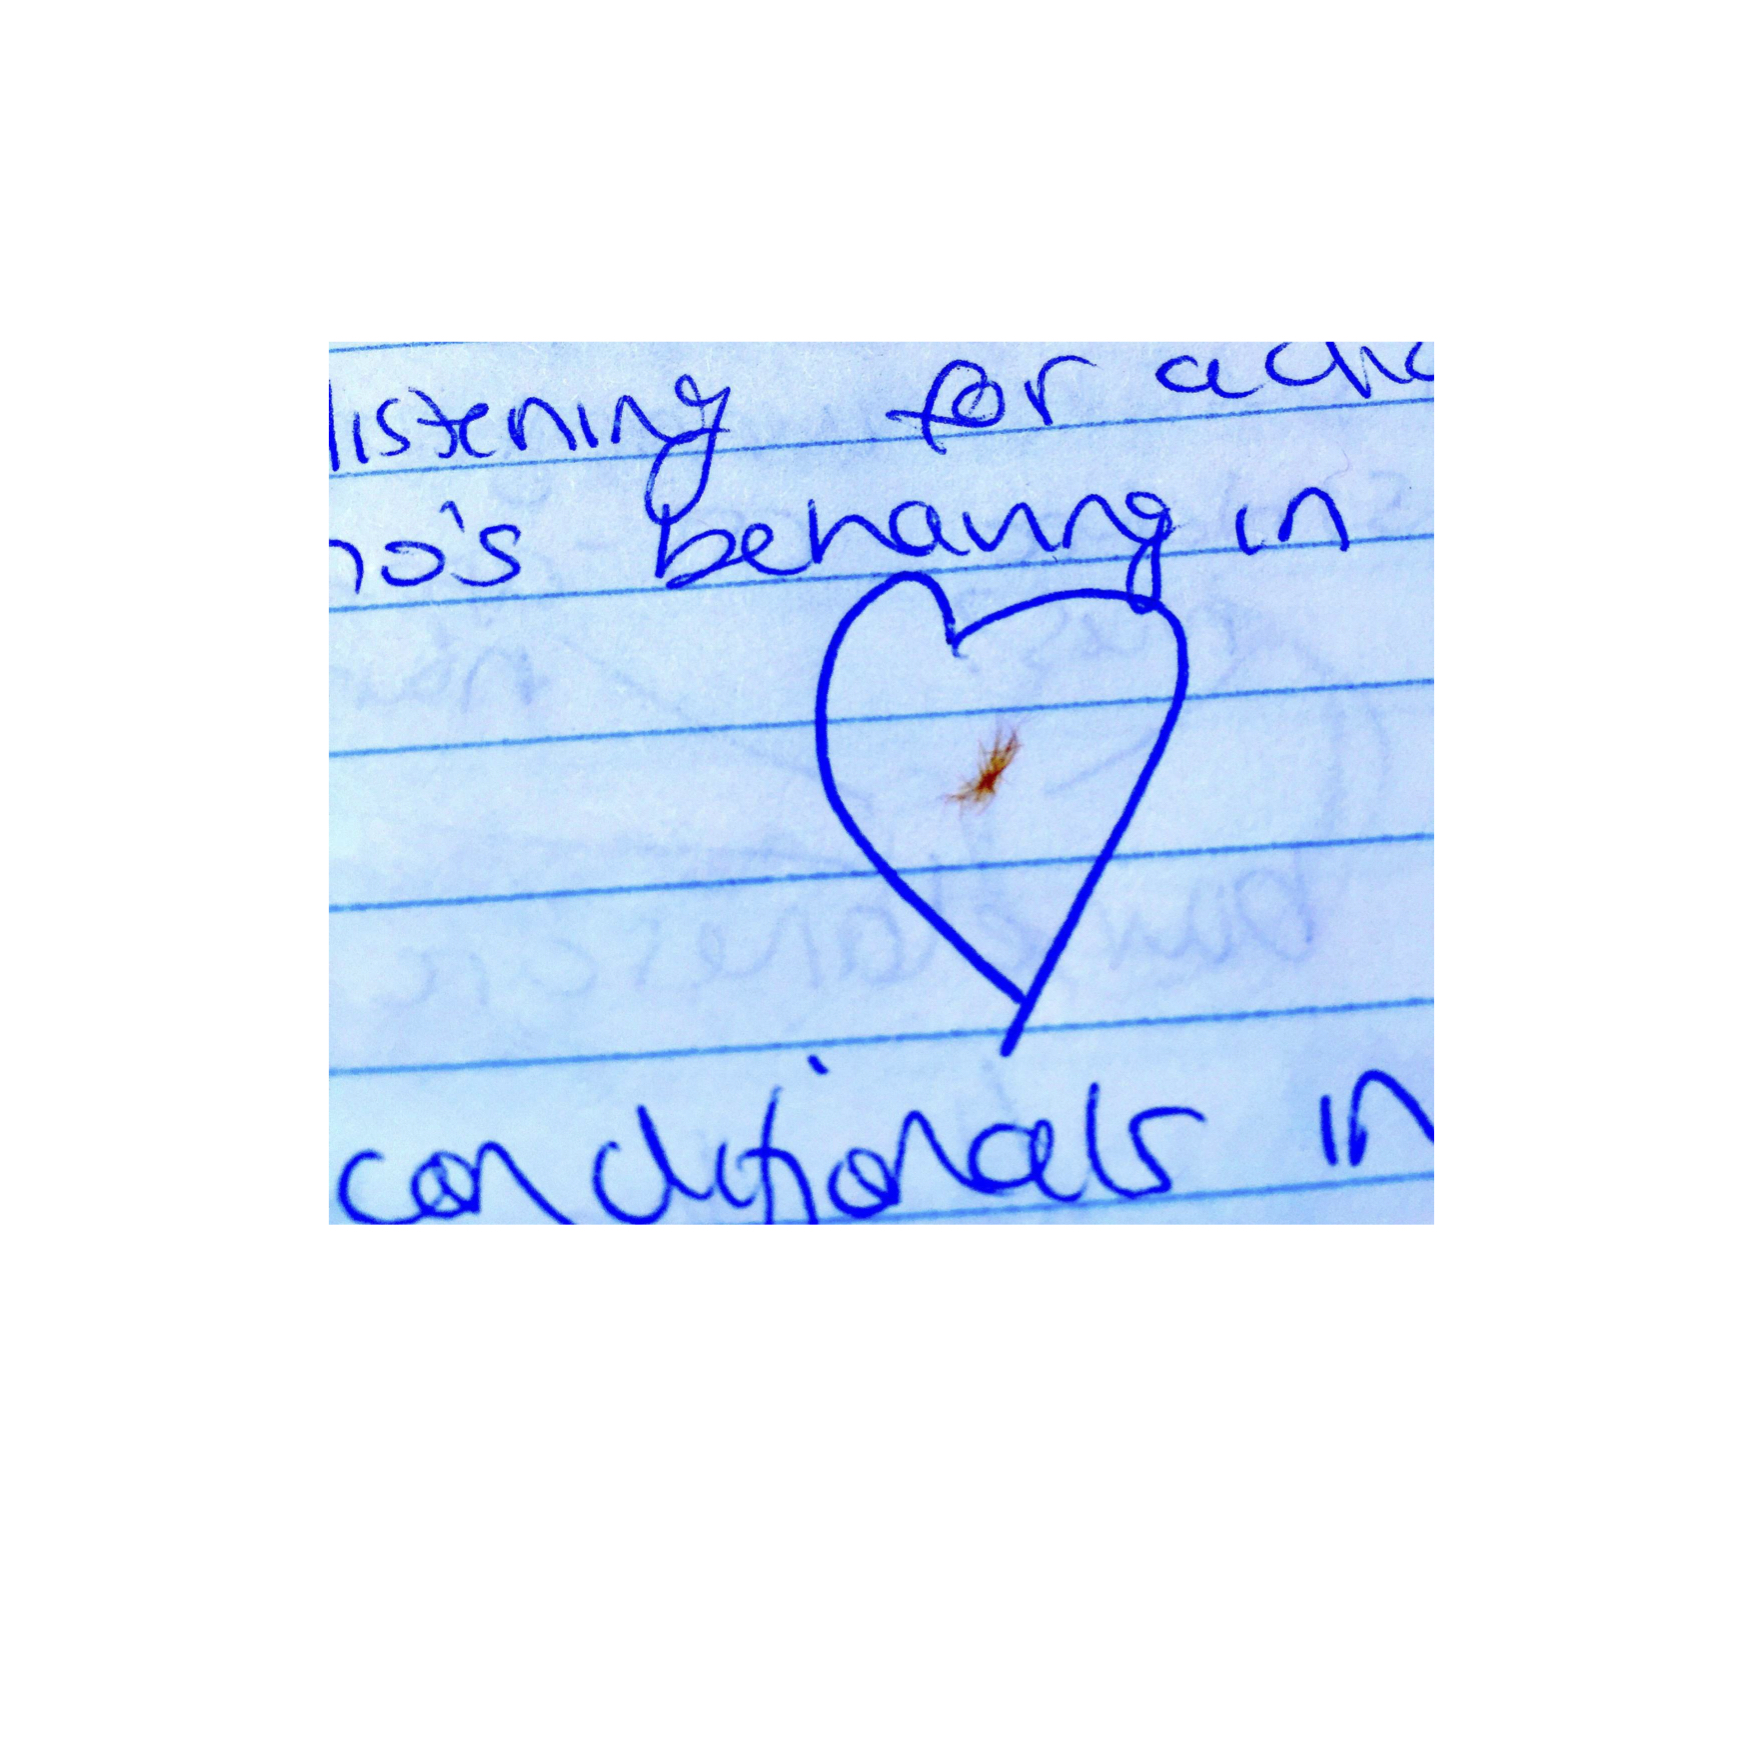 listening for
behaving in
conditionals in